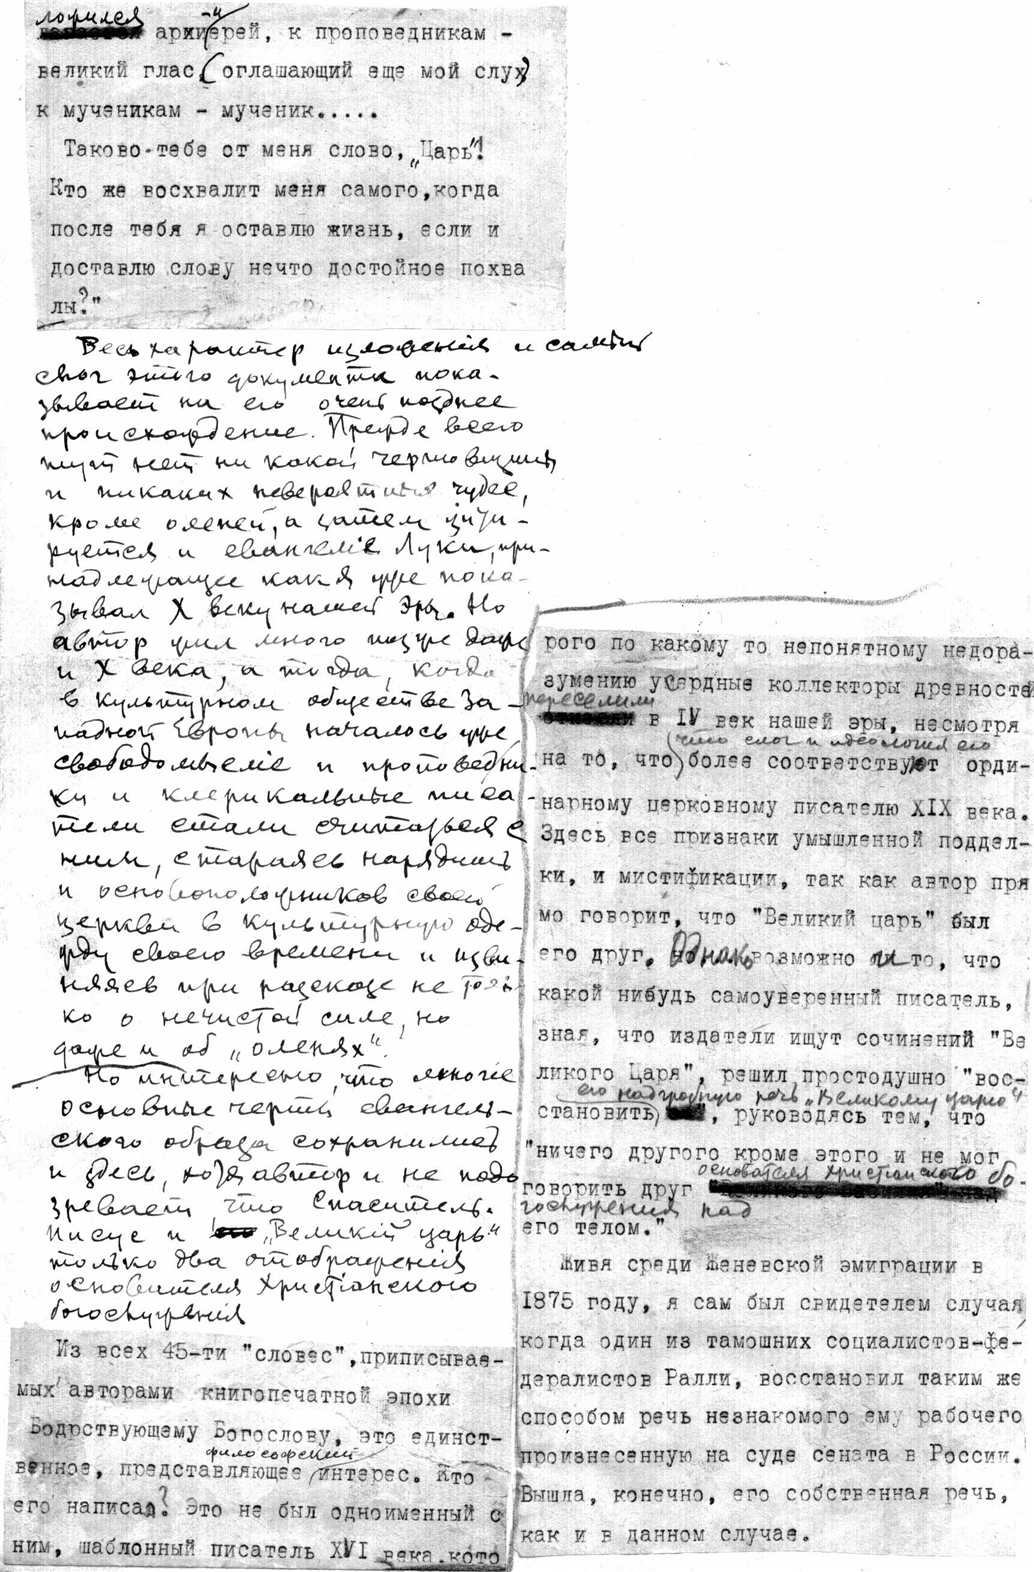 ложился архи-иерей, к проповедникам -
великий глас, (оглашающий еще мой слух)
к мученикам - мученик.....
Таково-тебе от меня слово, „Царь"!
Кто же восхвалит меня самого,когда
после тебя я оставлю жизнь, если и
доставлю слову нечто достойное похва
лы?"
Весь характер изложения и самый
слог этого документа пока-
зывает на его очень позднее
происхождение. Прежде всего
тут нет ни какой чертовщины
и никаких невероятных чудес,
кроме оленей, а затем цити-
руется и евангеліе Луки, при-
надлежащее как я уже пока-
зывал X веку нашей эры. Но
автор жил много позже даже
и X века, а тогда, когда
в культурном обществе За-
падной Европы началось уже
свободомысліе и проповедни-
ки и клерикальные писа-
тели стали считаться с
ним, стараясь нарядить
и основоположников своей
церкви в культурную оде-
жду своего времени и изви-
няясь при рассказе не толь
ко о нечистой силе, но
даже и об „оленях".
Но интересно, что многіе
основные черты евангель-
ского образа сохранились
и здесь, хотя автор и не подо
зревает, что Спаситель-
Иисус и „Великій царь"
только два отображения
основателя Христіанского
богослуженія
Из всех 45-ти "словес",приписывае-
мых авторами книгопечатной эпохи
Бодрствующему Богослову, это единст-
венное, представляющее философский интерес. Кто
его написал? Это не был одноименный с
ним, шаблонный писатель XVI века.кото
рого по какому то непонятному недора-
зумению усердные коллекторы древностей
переселили в IV век нашей эры, несмотря
на то, что (что слог и идеология его) более соответствует орди-
нарному церковному писателю XIX века.
Здесь все признаки умышленной поддел-
ки, и мистификации, так как автор пря
мо говорит, что "Великий царь" был
его друг. Однако возможно и то, что
какой нибудь самоуверенный писатель,
зная, что издатели ищут сочинений "Ве
ликого Царя", решил простодушно "вос-
становить его надгробную речь „Великому царю"", руководясь тем, что
"ничего другого кроме этого и не мог
говорить друг основателя христианского бо-
гослужения над
его телом."
Живя среди Женевской эмиграции в
1875 году, я сам был свидетелем случая
когда один из тамошних социалистов-фе-
дералистов Ралли, восстановил таким же
способом речь незнакомого ему рабочего
произнесенную на суде сената в России.
Вышла, конечно, его собственная речь,
как и в данном случае.